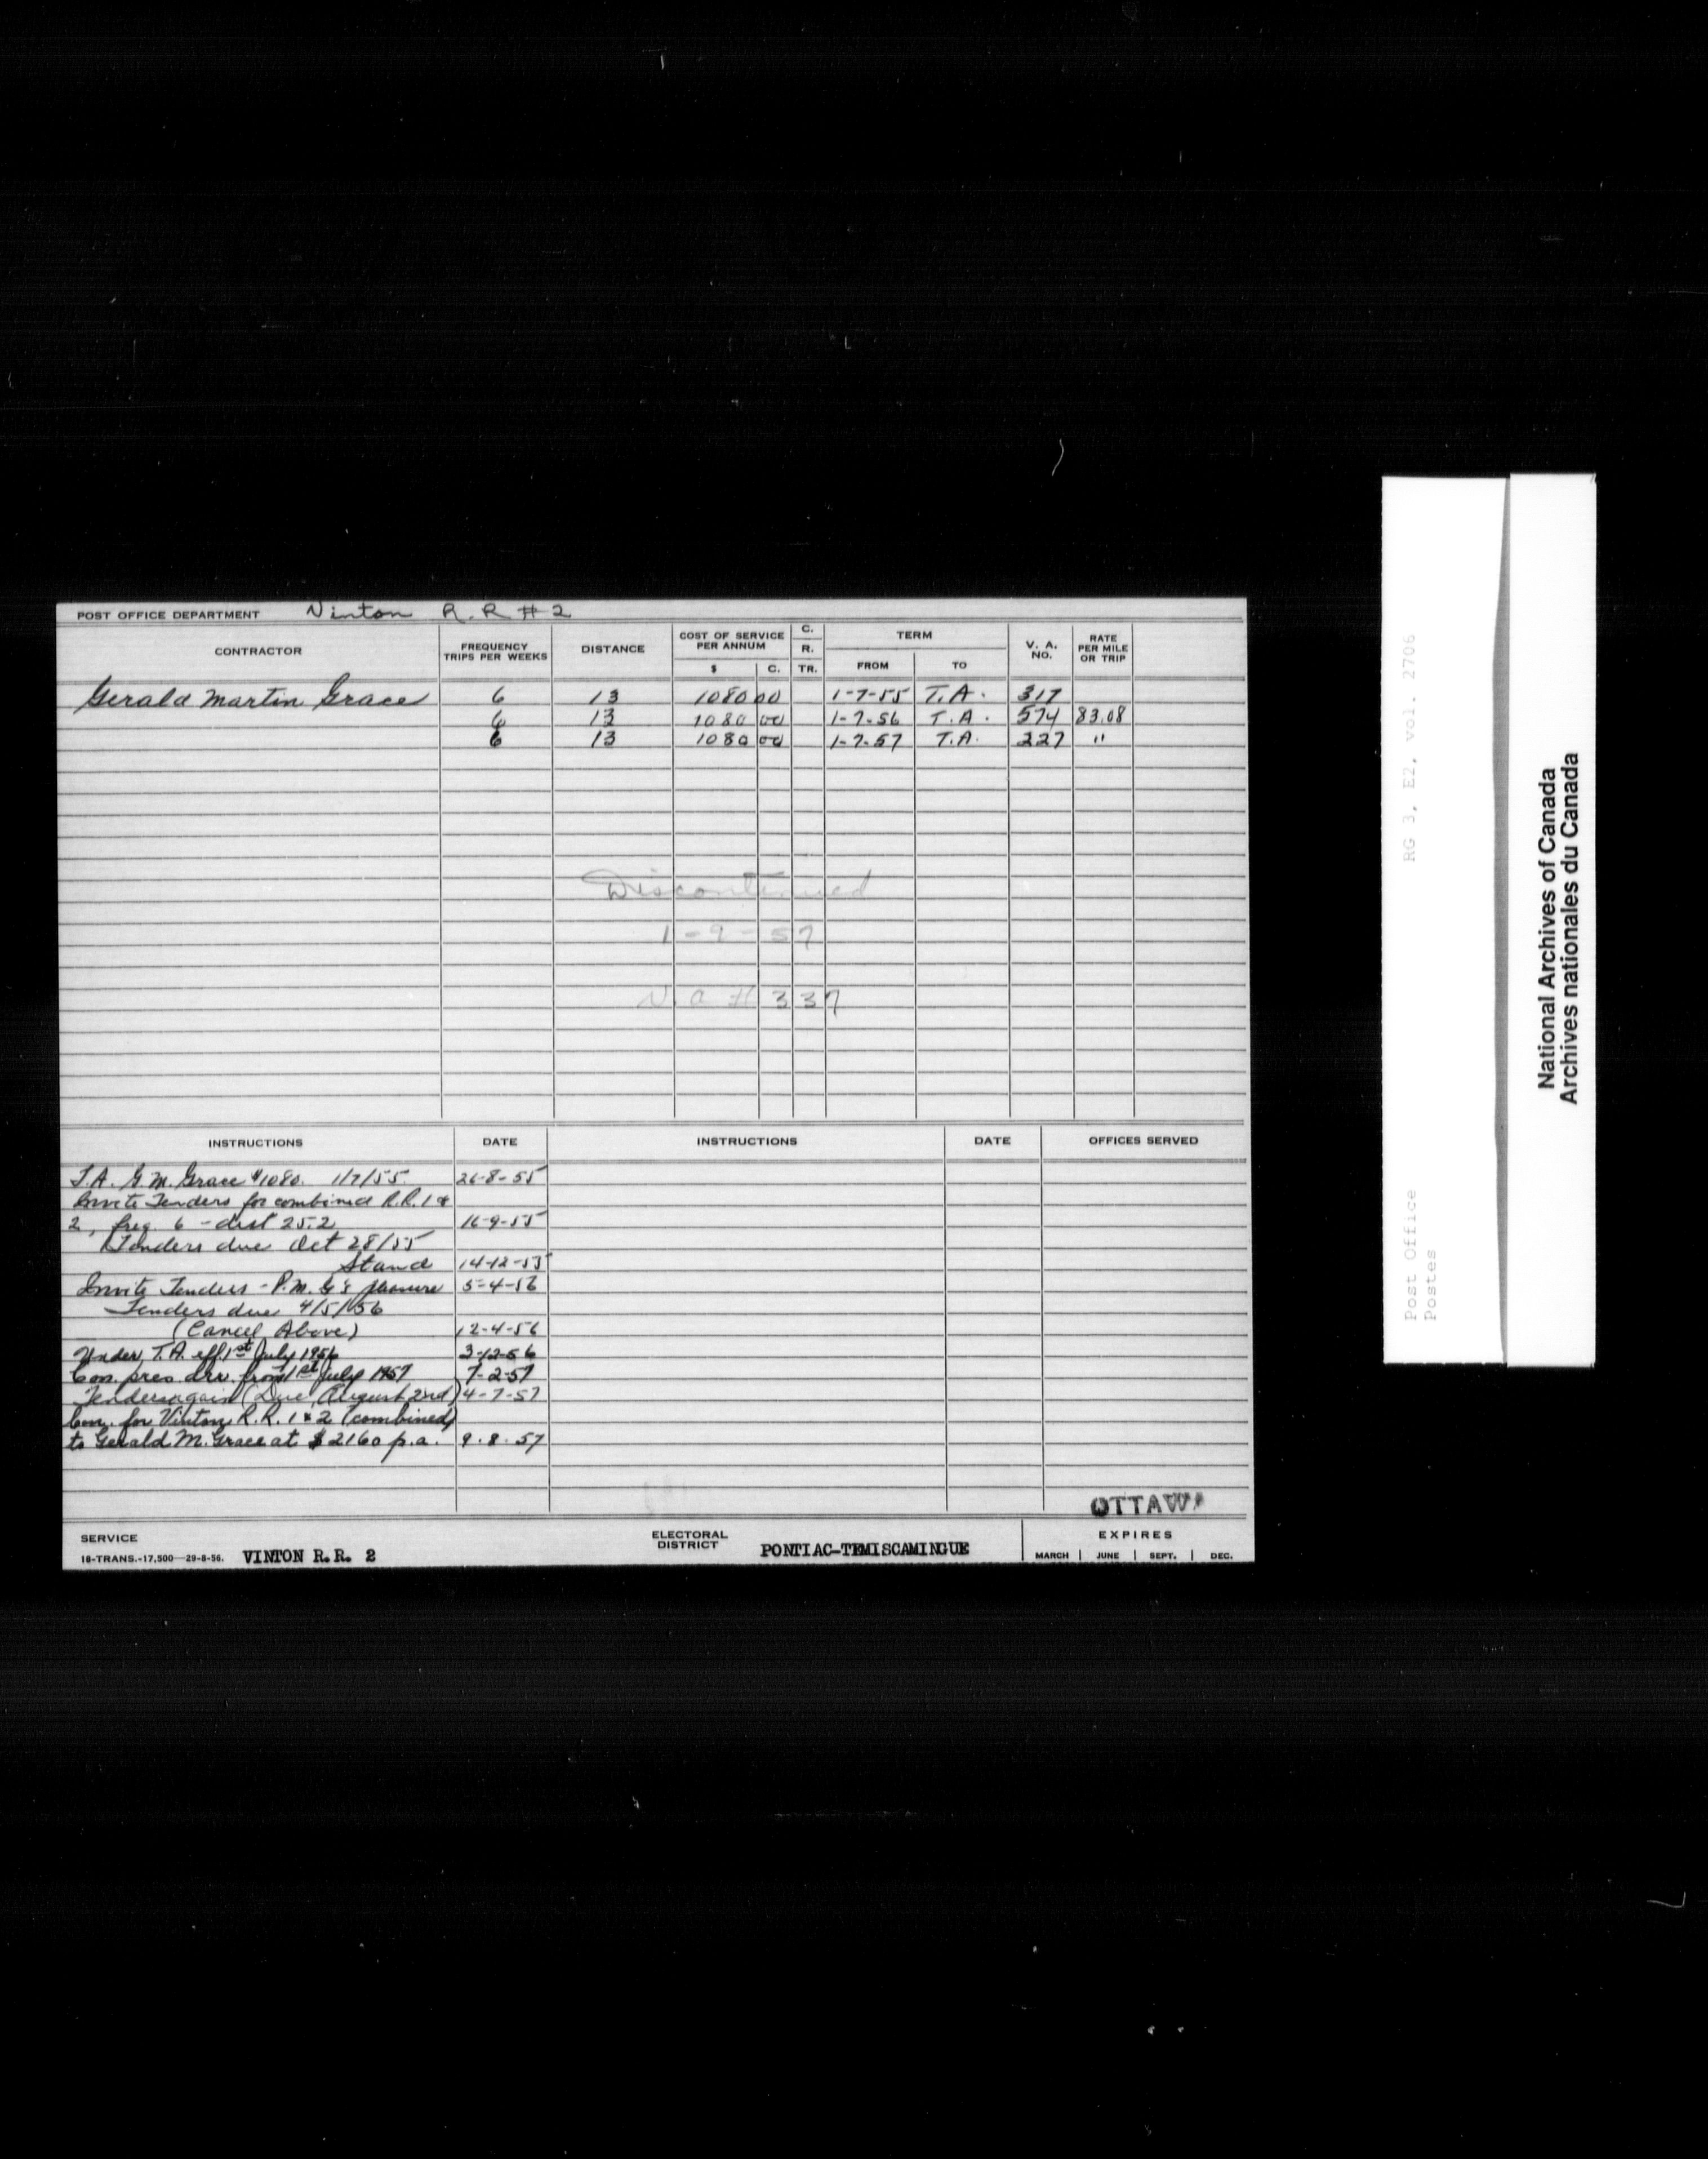 POST OFFICE DEPARTMENT Vinton R.R #2
CONTRACTOR FREQUENCY TRIPS PER WEEKS DISTANCE COST OF SERVICE PER ANNUM $ C. C. R. TR. TERM FROM TO V. A. NO. RATE PER MILE OR TRIP
Gerald Martin Grace 6 13 1080 00 1-7-55 T.A. 317
6 13 1080 00 1-7-56 T.A. 574 83.08
6 13 1080 00 1-7-57 T.A. 227 "
Discontinued
1-9-57
V a # 337
INSTRUCTIONS DATE INSTRUCTIONS DATE OFFICES SERVED
T.A. G.M. Grace $1080. 1/7/55 26-8-55
Invite Tenders for combined R.R. 1 &
2, freq. 6 - dist 25.2 16-9-55
Tenders due Oct 28/55
Stand 14-12-55
Invite Tenders - P.M.G's pleasure 5-4-56
Tenders due 4/5/56
(Cancel Above) 12-4-56
Under T.A. eff. 1st July 1956 3-12-56
Con. pres. arr. from 1st July 1957 7-2-57
Tenders again (Due August 2nd) 4-7-57
Con. for Vinton R.R. 1 & 2 (combined)
to Gerald M. Grace at $2160 p.a. 9.8.57
OTTAWA
SERVICE
18-TRANS.-17,500—29-8-56. VINTON R.R. 2
ELECTORAL DISTRICT PONTIAC-TEMISCAMINGUE
EXPIRES
MARCH JUNE SEPT. DEC.
Post Office RG 3, E2, vol. 2706
Postes
National Archives of Canada
Archives nationales du Canada